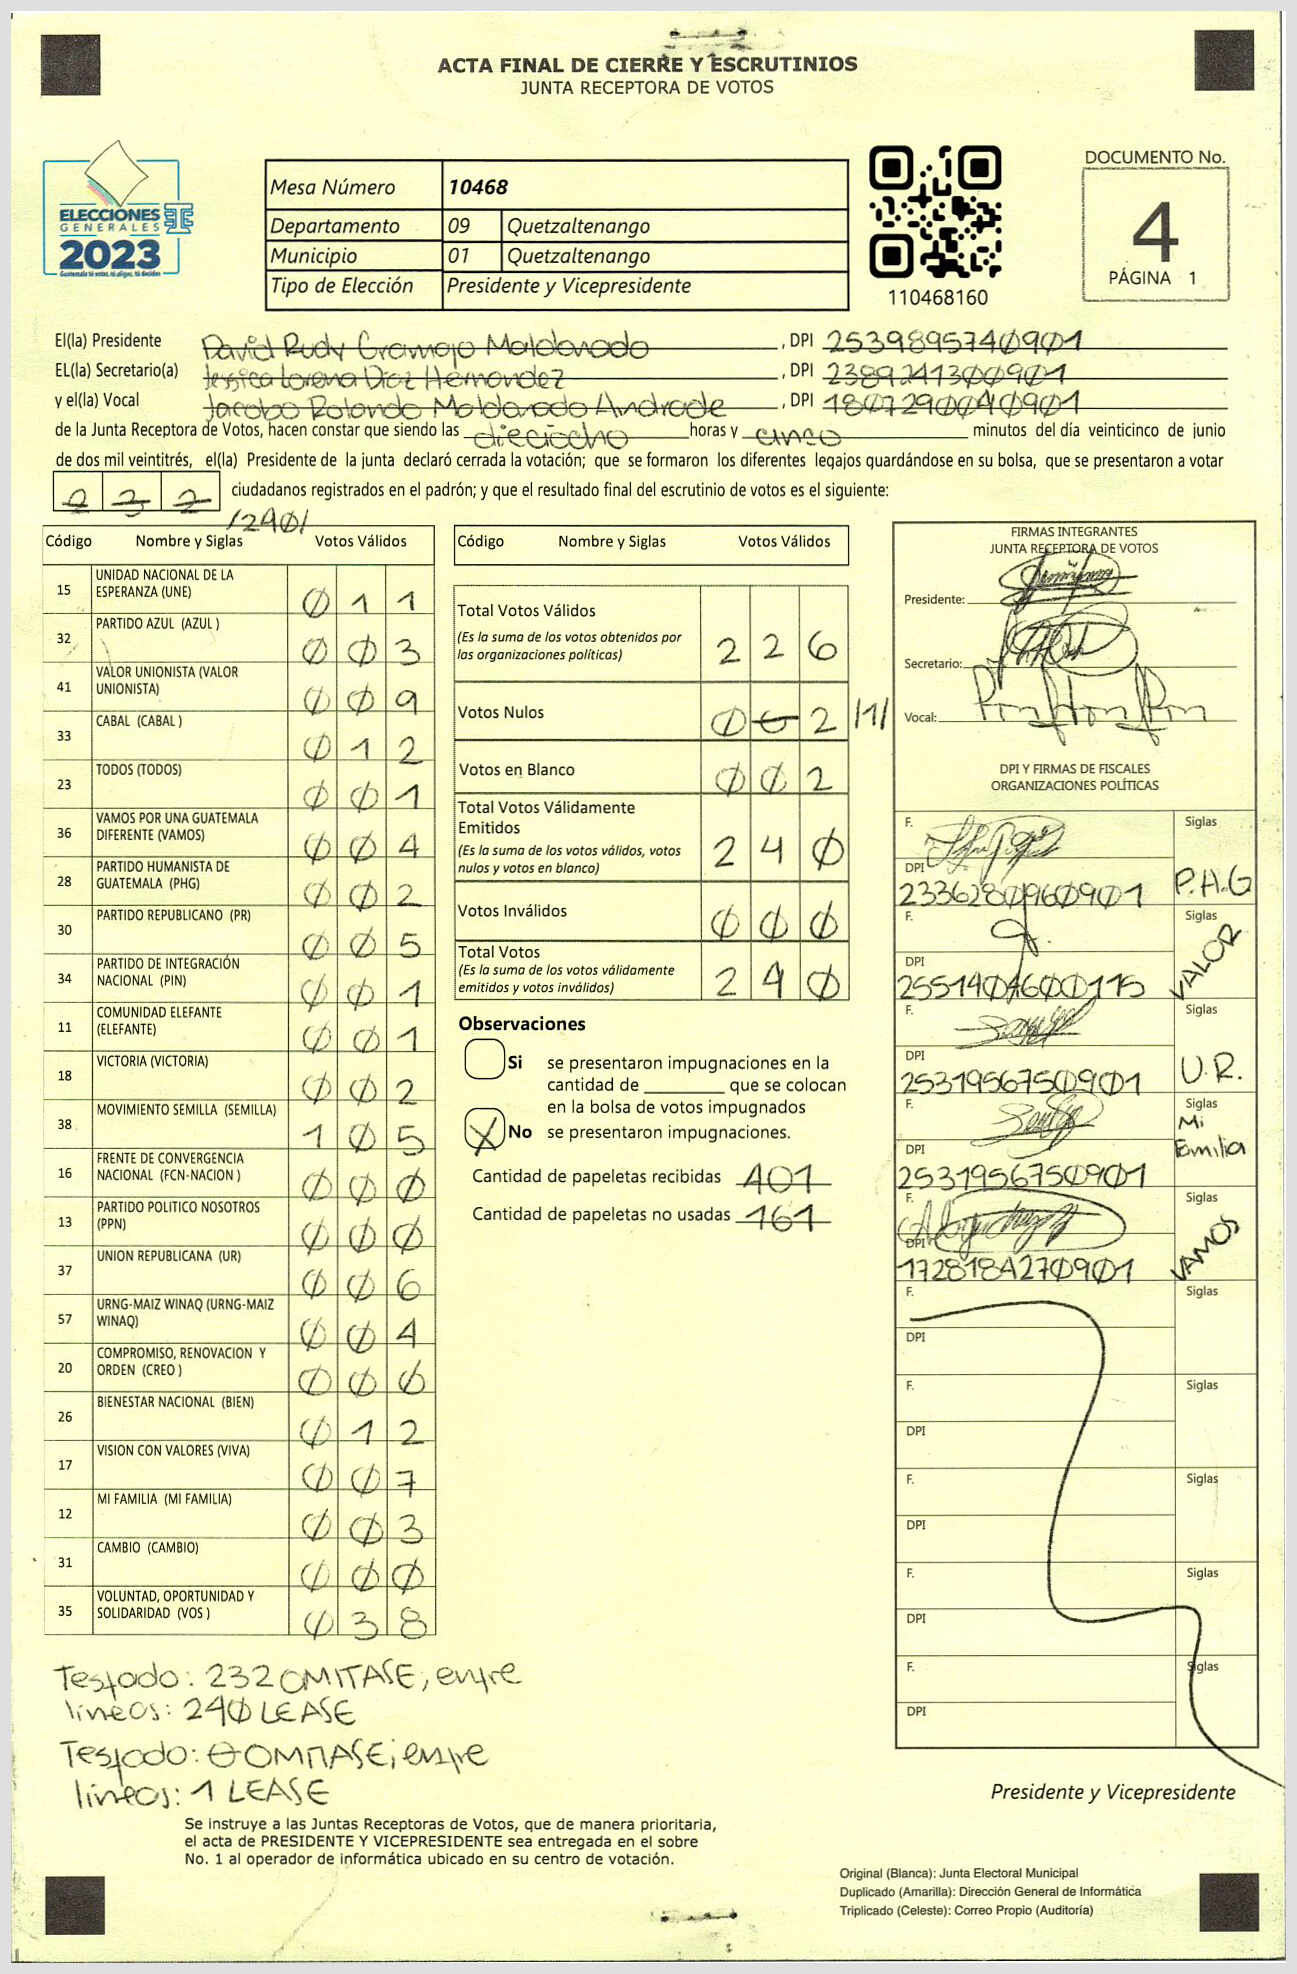 ACTA FINAL DE CIERRE Y ESCRUTINIOS
JUNTA RECEPTORA DE VOTOS
ELECCIONES
GENERALES
2023
Guatemala tú votas, tú eliges, tú decides
Mesa Número 10468
Departamento 09 Quetzaltenango
Municipio 01 Quetzaltenango
Tipo de Elección Presidente y Vicepresidente
110468160
DOCUMENTO No.
4
PÁGINA 1
El(la) Presidente David Rudy Gramajo Maldonado, DPI 2539895740901
EL(la) Secretario(a) Jessica Lorena Díaz Hernández, DPI 2389241300901
y el(la) Vocal Jacobo Rolando Maldonado Andrade, DPI 1807290040901
de la Junta Receptora de Votos, hacen constar que siendo las dieciocho horas y cinco minutos del día veinticinco de junio
de dos mil veintitrés, el(la) Presidente de la junta declaró cerrada la votación; que se formaron los diferentes legajos guardándose en su bolsa, que se presentaron a votar
232 ciudadanos registrados en el padrón; y que el resultado final del escrutinio de votos es el siguiente:
/240/
Código Nombre y Siglas Votos Válidos
15 UNIDAD NACIONAL DE LA
ESPERANZA (UNE) 0 1 1
32 PARTIDO AZUL (AZUL ) 0 0 3
41 VALOR UNIONISTA (VALOR
UNIONISTA) 0 0 9
33 CABAL (CABAL ) 0 1 2
23 TODOS (TODOS) 0 0 1
36 VAMOS POR UNA GUATEMALA
DIFERENTE (VAMOS) 0 0 4
28 PARTIDO HUMANISTA DE
GUATEMALA (PHG) 0 0 2
30 PARTIDO REPUBLICANO (PR) 0 0 5
34 PARTIDO DE INTEGRACIÓN
NACIONAL (PIN) 0 0 1
11 COMUNIDAD ELEFANTE
(ELEFANTE) 0 0 1
18 VICTORIA (VICTORIA) 0 0 2
38 MOVIMIENTO SEMILLA (SEMILLA) 1 0 5
16 FRENTE DE CONVERGENCIA
NACIONAL (FCN-NACION ) 0 0 0
13 PARTIDO POLITICO NOSOTROS
(PPN) 0 0 0
37 UNION REPUBLICANA (UR) 0 0 6
57 URNG-MAIZ WINAQ (URNG-MAIZ
WINAQ) 0 0 4
20 COMPROMISO, RENOVACION Y
ORDEN (CREO ) 0 0 0
26 BIENESTAR NACIONAL (BIEN) 0 1 2
17 VISION CON VALORES (VIVA) 0 0 7
12 MI FAMILIA (MI FAMILIA) 0 0 3
31 CAMBIO (CAMBIO) 0 0 0
35 VOLUNTAD, OPORTUNIDAD Y
SOLIDARIDAD (VOS ) 0 3 8
Testado: 232 OMITASE, entre
líneas: 240 LEASE
Testado: 0 OMITASE; entre
líneas: 1 LEASE
Código Nombre y Siglas Votos Válidos
Total Votos Válidos
(Es la suma de los votos obtenidos por
las organizaciones políticas) 2 2 6
Votos Nulos 0 0 2 /1/
Votos en Blanco 0 0 2
Total Votos Válidamente
Emitidos
(Es la suma de los votos válidos, votos
nulos y votos en blanco) 2 4 0
Votos Inválidos 0 0 0
Total Votos
(Es la suma de los votos válidamente
emitidos y votos inválidos) 2 4 0
Observaciones
Si se presentaron impugnaciones en la
cantidad de ________ que se colocan
en la bolsa de votos impugnados
X No se presentaron impugnaciones.
Cantidad de papeletas recibidas 401
Cantidad de papeletas no usadas 161
FIRMAS INTEGRANTES
JUNTA RECEPTORA DE VOTOS
Presidente:
Secretario:
Vocal:
DPI Y FIRMAS DE FISCALES
ORGANIZACIONES POLÍTICAS
F. Siglas
DPI
2336280960901 P.H.G
F. Siglas
DPI
2551404600115 VALOR
F. Siglas
DPI
2531956750901 U.R.
F. Siglas
DPI
2531956750901 Mi
Familia
F. Siglas
DPI
1728184270901 VAMOS
F. Siglas
DPI
F. Siglas
DPI
F. Siglas
DPI
F. Siglas
DPI
F. Siglas
DPI
Presidente y Vicepresidente
Se instruye a las Juntas Receptoras de Votos, que de manera prioritaria,
el acta de PRESIDENTE Y VICEPRESIDENTE sea entregada en el sobre
No. 1 al operador de informática ubicado en su centro de votación.
Original (Blanca): Junta Electoral Municipal
Duplicado (Amarilla): Dirección General de Informática
Triplicado (Celeste): Correo Propio (Auditoría)